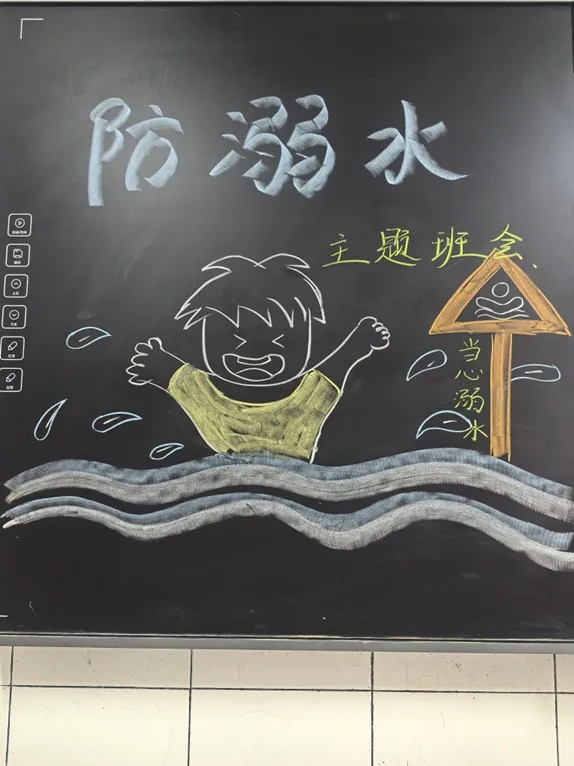 防溺水
主题班会
当心溺水